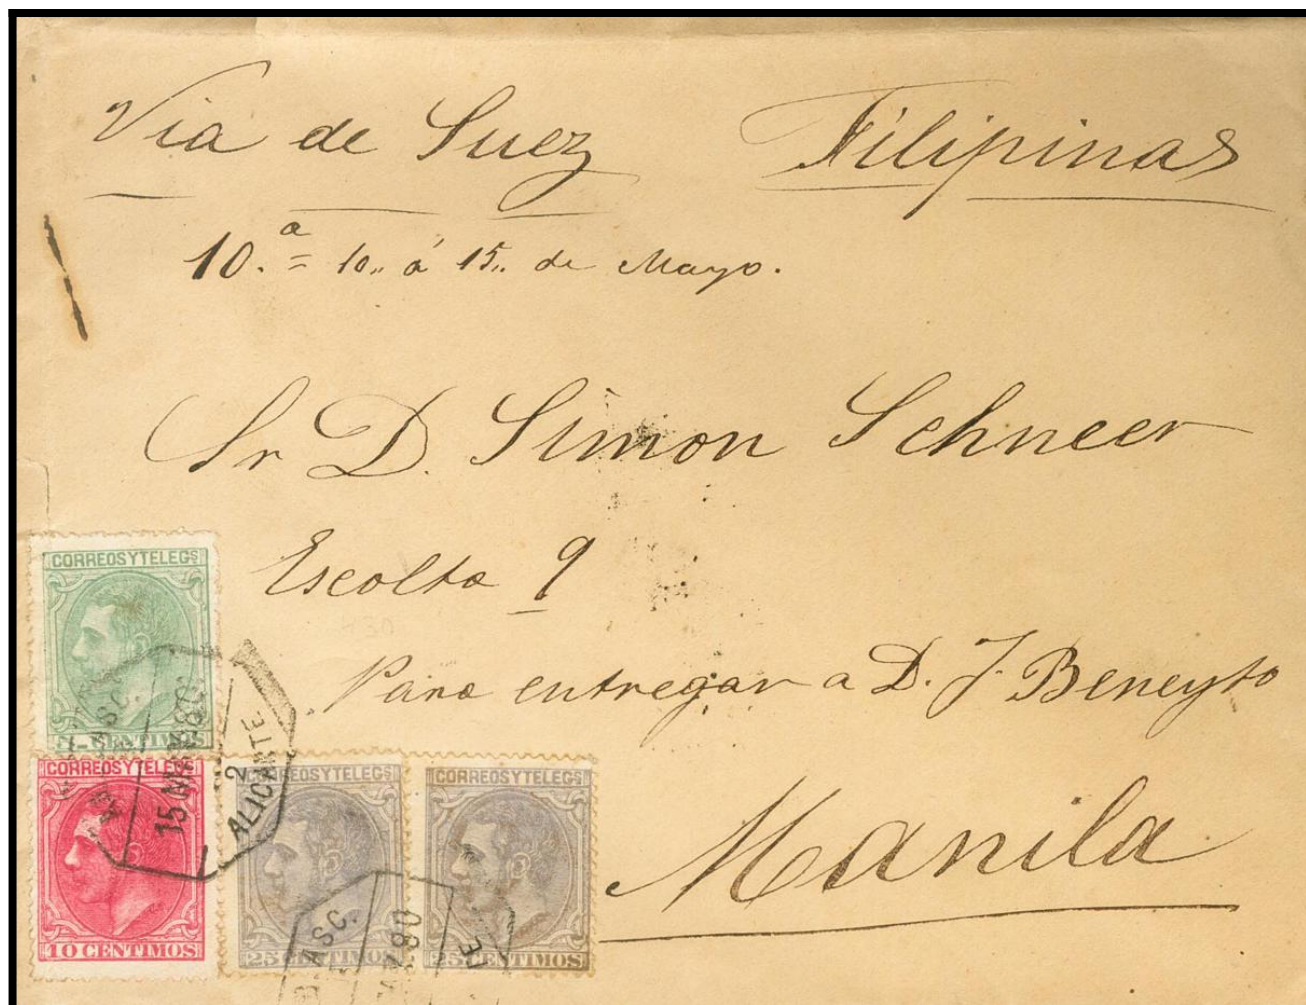 Via de Suez Filipinas
10.ª = 10,, á 15,, de Mayo.
Sr D. Simon Schneer
Escolta 9
Para entregar a D. J. Beneyto
Manila
CORREOS Y TELEGS
CENTIMOS
CORREOS Y TELEGS
10 CENTIMOS
CORREOS Y TELEGS
25 CENTIMOS
CORREOS Y TELEGS
25 CENTIMOS
ASC.
15 MAY 80
2
ALICANTE
ASC.
80
TE